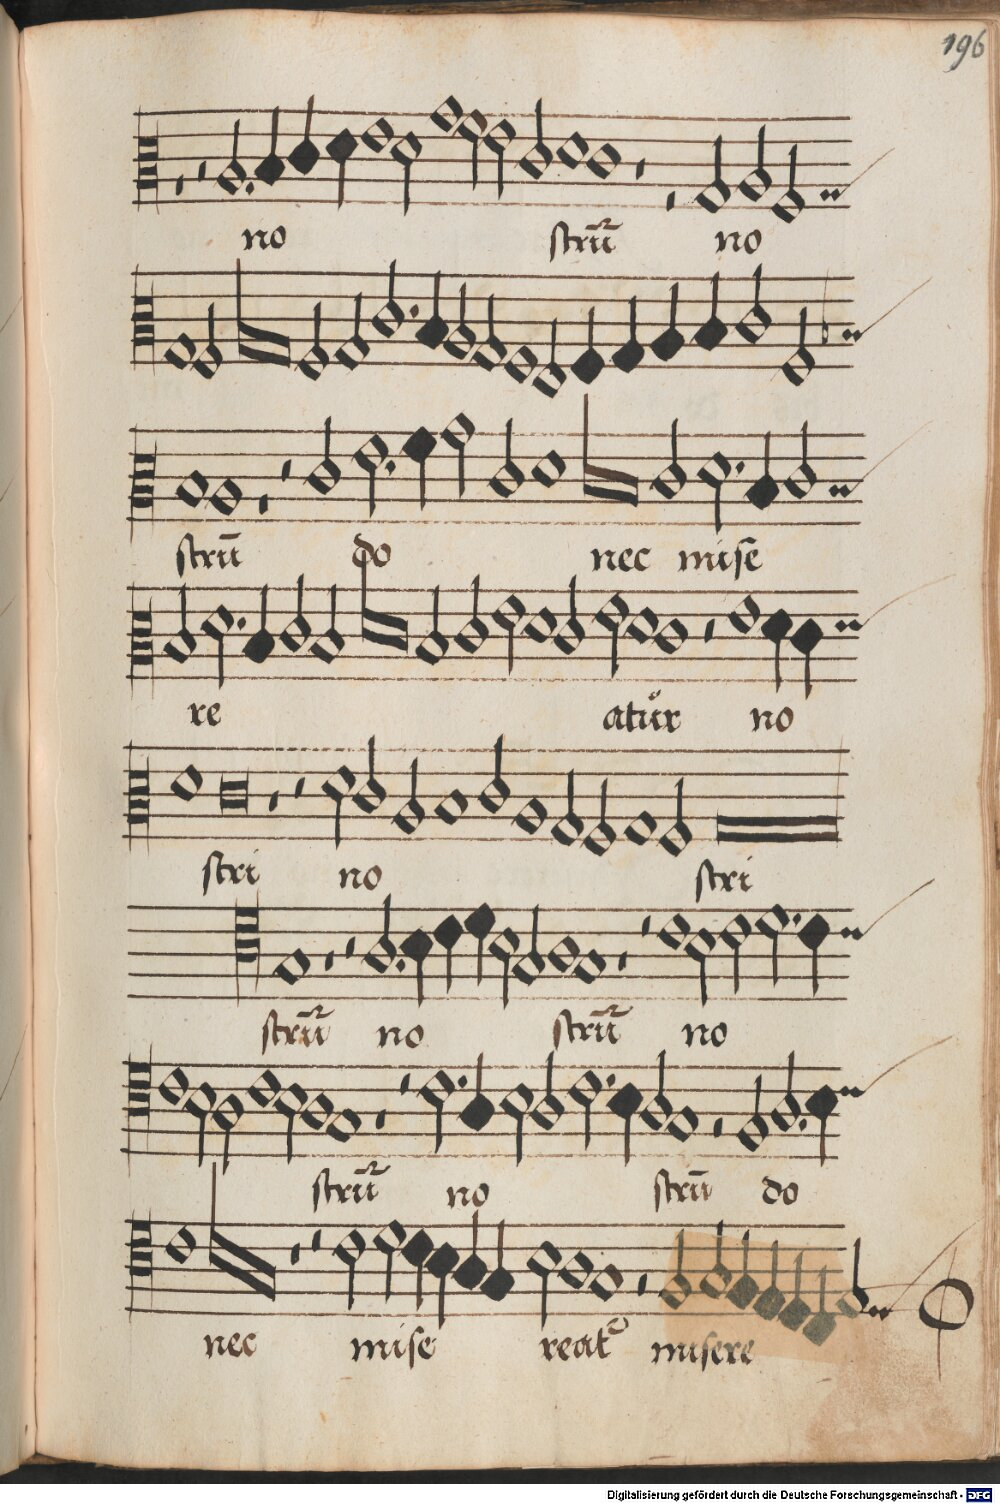 196
no strũ no
strũ do nec mise
re atur no
stri no stri
strũ no strũ no
strũ no strũ do
nec mise reat misere
Digitalisierung gefördert durch die Deutsche Forschungsgemeinschaft - DFG